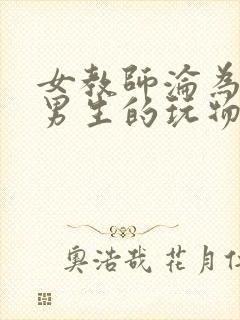 女教師淪為
男生的玩物
奧浩哉 花月仁